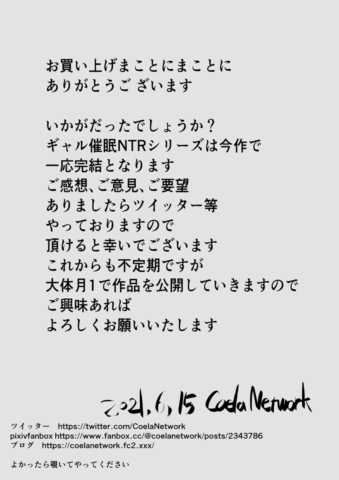 お買い上げまことにまことに
ありがとうご ざいます
いかがだったでしょうか？
ギャル催眠NTRシリーズは今作で
一応完結となります
ご感想、ご意見、ご要望
ありましたらツイッター等
やっておりますので
頂けると幸いでございます
これからも不定期ですが
大体月1で作品を公開していきますので
ご興味あれば
よろしくお願いいたします
2021,6,15 Coela Network
ツイッター　https://twitter.com/CoelaNetwork
pixivfanbox https://www.fanbox.cc/@coelanetwork/posts/2343786
ブログ　https://coelanetwork.fc2.xxx/
よかったら覗いてやってください